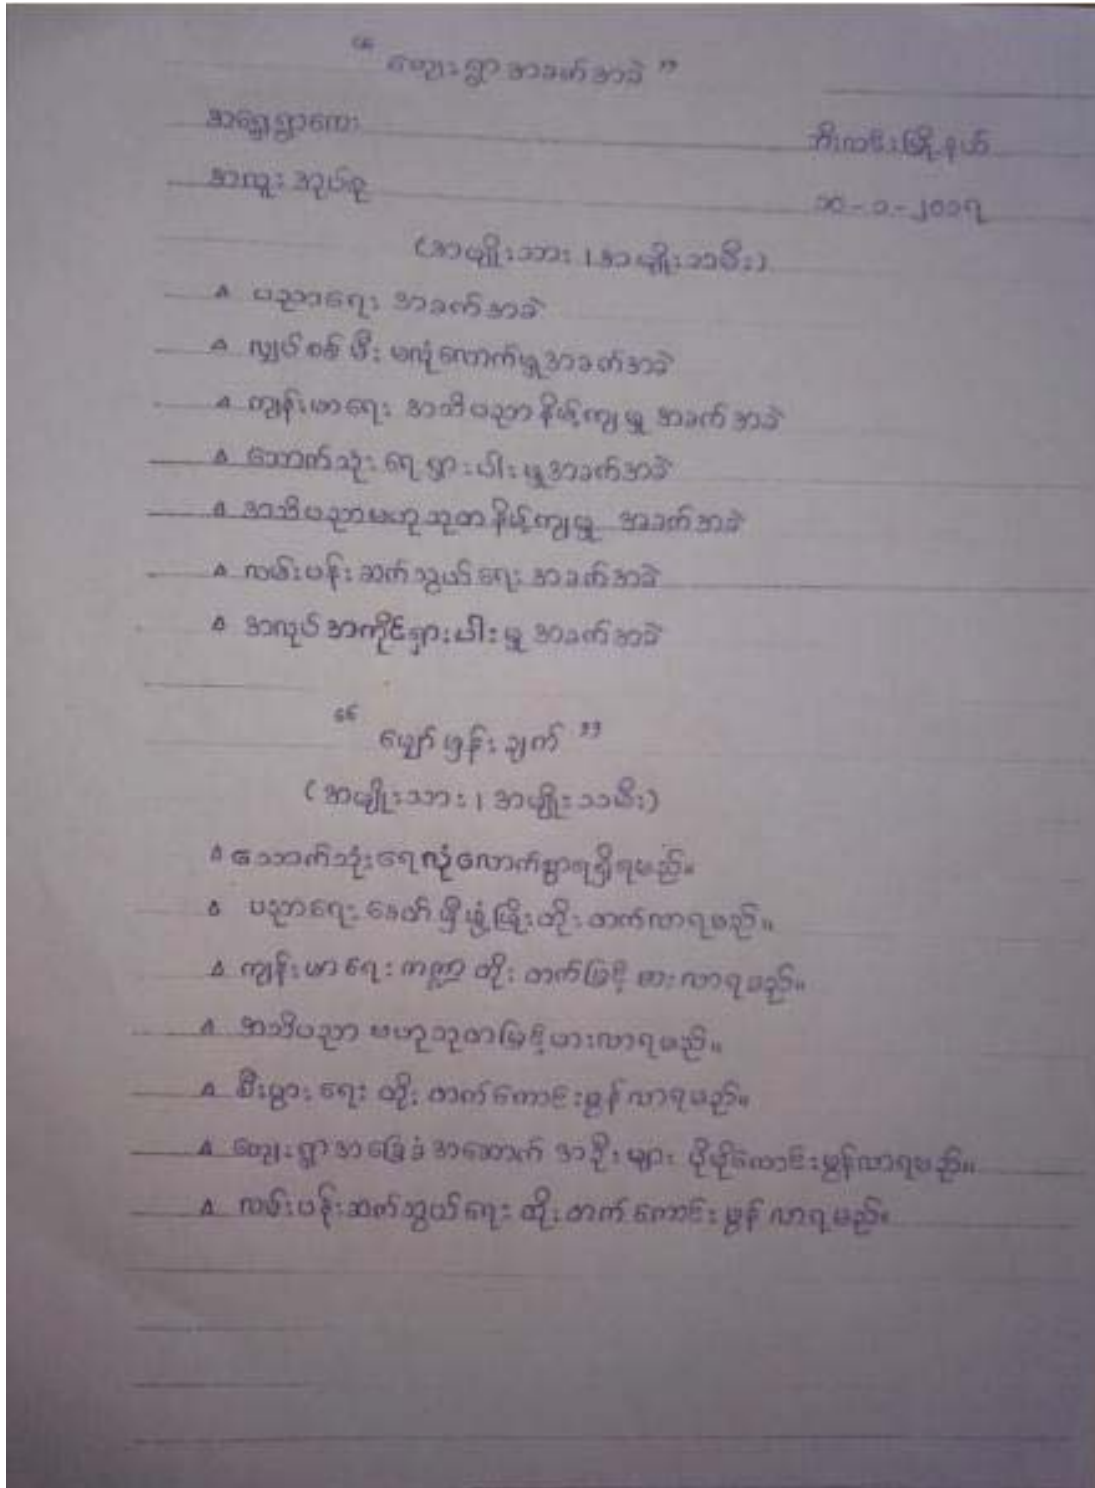 “ ကျေးရွာအခက်အခဲ ”
အရှေ့ရွာကေး ဘီးလင်းမြို့နယ်
အလူးအုပ်စု ၁၀-၁-၂၀၁၇
(အမျိုးသား ၊ အမျိုးသမီး)
ပညာရေး အခက်အခဲ
လျှပ်စစ်မီး မလုံလောက်မှုအခက်အခဲ
ကျန်းမာရေး အသိပညာနိမ့်ကျမှု အခက်အခဲ
သောက်သုံးရေ ရှားပါးမှုအခက်အခဲ
အသိပညာဗဟုသုတနိမ့်ကျမှု အခက်အခဲ
လမ်းပန်းဆက်သွယ်ရေး အခက်အခဲ
အလုပ်အကိုင်ရှားပါးမှု အခက်အခဲ
“ မျှော်မှန်းချက် ”
(အမျိုးသား ၊ အမျိုးသမီး)
သောက်သုံးရေလုံလောက်စွာရရှိရမည်။
ပညာရေး ခေတ်မှီဖွံ့ဖြိုးတိုးတက်လာရမည်။
ကျန်းမာရေး ကဏ္ဍ တိုးတက်မြင့်မားလာရမည်။
အသိပညာ ဗဟုသုတမြင့်မားလာရမည်။
စီးပွားရေး တိုးတက်ကောင်းမွန်လာရမည်။
ကျေးရွာအခြေခံအဆောက်အဦးများ ပိုမိုကောင်းမွန်လာရမည်။
လမ်းပန်းဆက်သွယ်ရေး တိုးတက်ကောင်းမွန်လာရမည်။